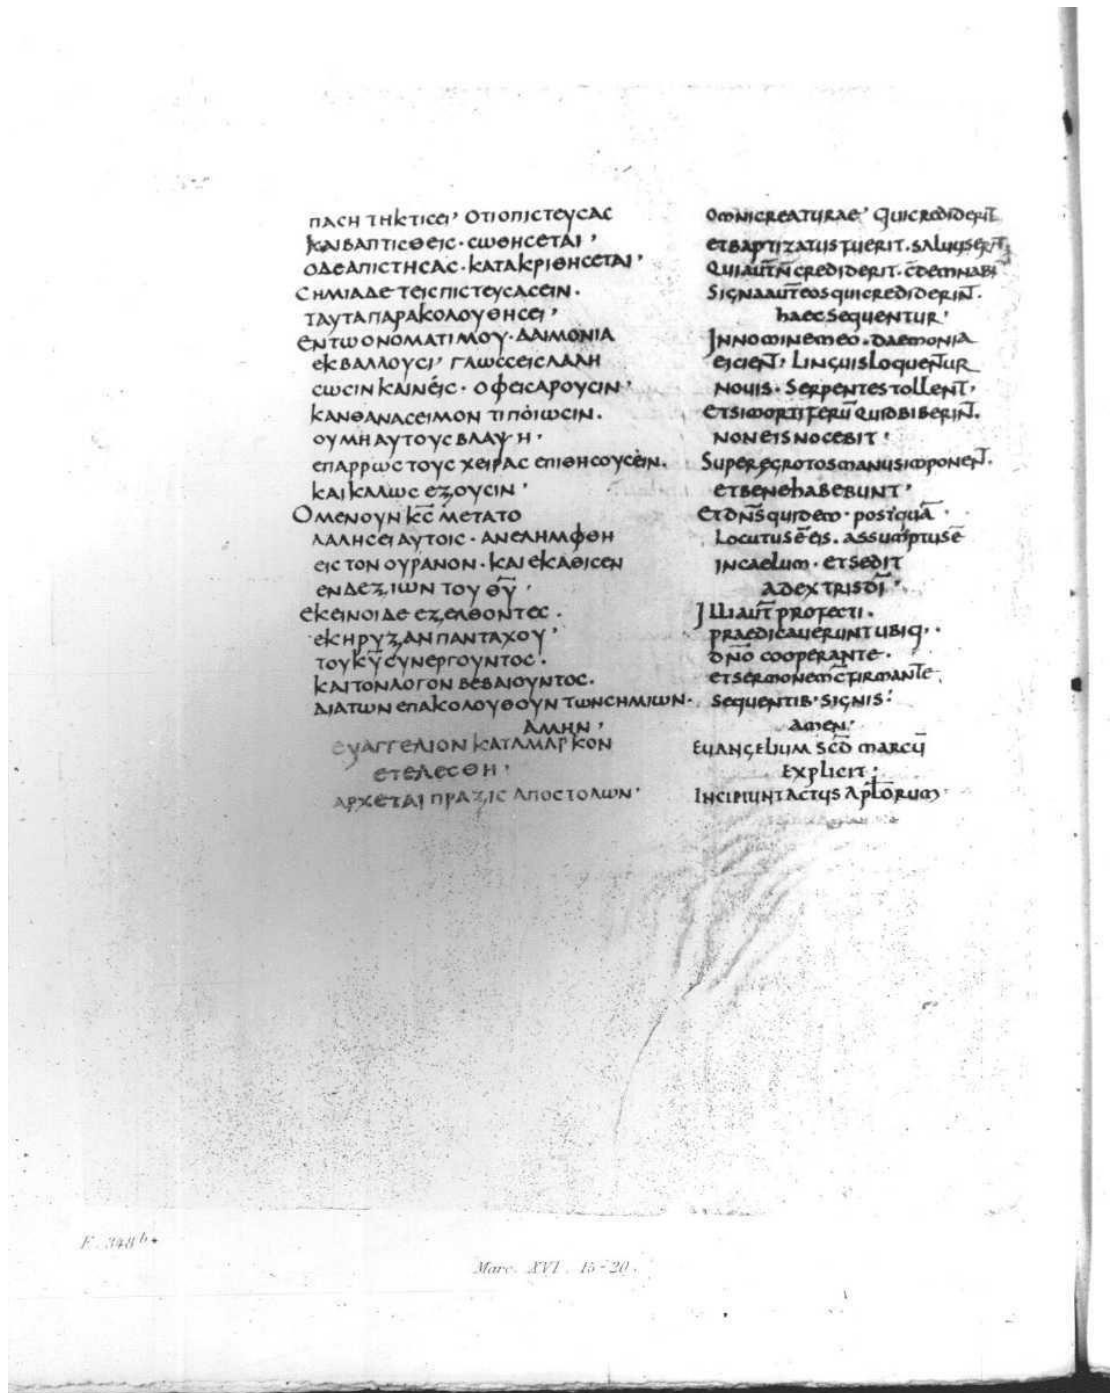 ΠΑCΗ ΤΗΚΤΙCΕΙ· ΟΤΙΟΠΙCΤΕΥCΑC
ΚΑΙΒΑΠΤΙCΘΕΙC· CΩΘΗCΕΤΑΙ·
ΟΔΕΑΠΙCΤΗCΑC· ΚΑΤΑΚΡΙΘΗCΕΤΑΙ·
CΗΜΙΑΔΕ ΤΕΙCΠΙCΤΕΥCΑCΕΙΝ·
ΤΑΥΤΑΠΑΡΑΚΟΛΟΥΘΗCΕΙ·
ΕΝΤΩΟΝΟΜΑΤΙΜΟΥ· ΔΑΙΜΟΝΙΑ
ΕΚΒΑΛΛΟΥCΙ· ΓΛΩCCΕΙCΛΑΛΗ
CΩCΙΝΚΑΙΝΕΙC· ΟΦΕΙCΑΡΟΥCΙΝ·
ΚΑΝΘΑΝΑCΕΙΜΟΝ ΤΙΠΟΙΩCΙΝ·
ΟΥΜΗΑΥΤΟΥCΒΛΑΨΗ·
ΕΠΑΡΡΩCΤΟΥC ΧΕΙΡΑC ΕΠΙΘΗCΟΥCΕΙΝ·
ΚΑΙΚΑΛΩC ΕΞΟΥCΙΝ·
ΟΜΕΝΟΥΝ Κ̅C̅ ΜΕΤΑΤΟ
ΛΑΛΗCΕΙΑΥΤΟΙC· ΑΝΕΛΗΜΦΘΗ
ΕΙC ΤΟΝ ΟΥΡΑΝΟΝ· ΚΑΙΕΚΑΘΙCΕΝ
ΕΝΔΕΞΙΩΝ ΤΟΥ Θ̅Υ̅·
ΕΚΕΙΝΟΙΔΕ ΕΞΕΛΘΟΝΤΕC·
ΕΚΗΡΥΞΑΝ ΠΑΝΤΑΧΟΥ·
ΤΟΥΚ̅Υ̅CΥΝΕΡΓΟΥΝΤΟC·
ΚΑΙΤΟΝΛΟΓΟΝ ΒΕΒΑΙΟΥΝΤΟC·
ΔΙΑΤΩΝ ΕΠΑΚΟΛΟΥΘΟΥΝ ΤΩΝCΗΜΙΩΝ·
ΑΜΗΝ·
ΕΥΑΓΓΕΛΙΟΝ ΚΑΤΑΜΑΡΚΟΝ
ΕΤΕΛΕCΘΗ·
ΑΡΧΕΤΑΙ ΠΡΑΞΙC ΑΠΟCΤΟΛΩΝ·
OMNICREATURAE· QUICREDIDERIT̅
ETBAPTIZATUSFUERIT· SALUUSERIT̅
QUIAUT̅N̅ CREDIDERIT· C̅DEMNABI
SIGNAAUT̅EOSQUICREDIDERIN̅T̅·
HAECSEQUENTUR·
INNOMINEMEO· DAEMONIA
EICIEN̅T̅· LINGUISLOQUEN̅TUR
NOUIS· SERPENTESTOLLEN̅T̅·
ETSIMORTIFERU̅ QUIDBIBERIN̅T̅·
NONEISNOCEBIT·
SUPEREGROTOSMANUSIMPONEN̅T̅·
ETBENEHABEBUNT·
ETDN̅S̅QUIDEM· POSTQUA̅
LOCUTUSE̅EIS· ASSUMPTUSE̅
INCAELUM· ETSEDIT
ADEXTRISD̅I̅·
ILLIAUT̅ PROFECTI·
PRAEDICAUERUNTUBIQ·
DN̅O̅ COOPERANTE·
ETSERMONEMC̅FIRMANTE̅
SEQUENTIB· SIGNIS·
AMEN·
EUANGELIUM SC̅D̅ MARCU̅
EXPLICIT·
INCIPIUNTACTUS APL̅ORUM·
F. 348 b.
Marc. XVI. 15-20.